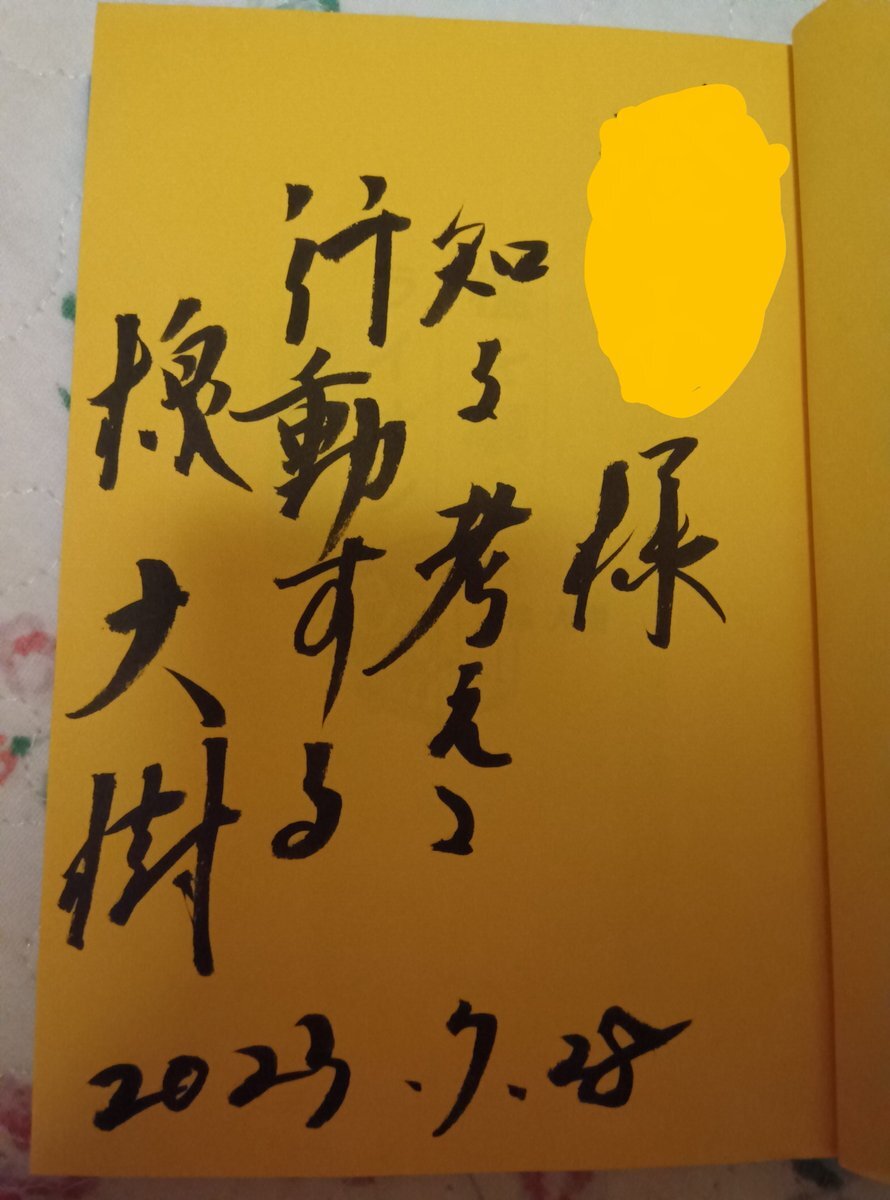 様
知る 考える
行動する
楾 大樹
2023.7.28